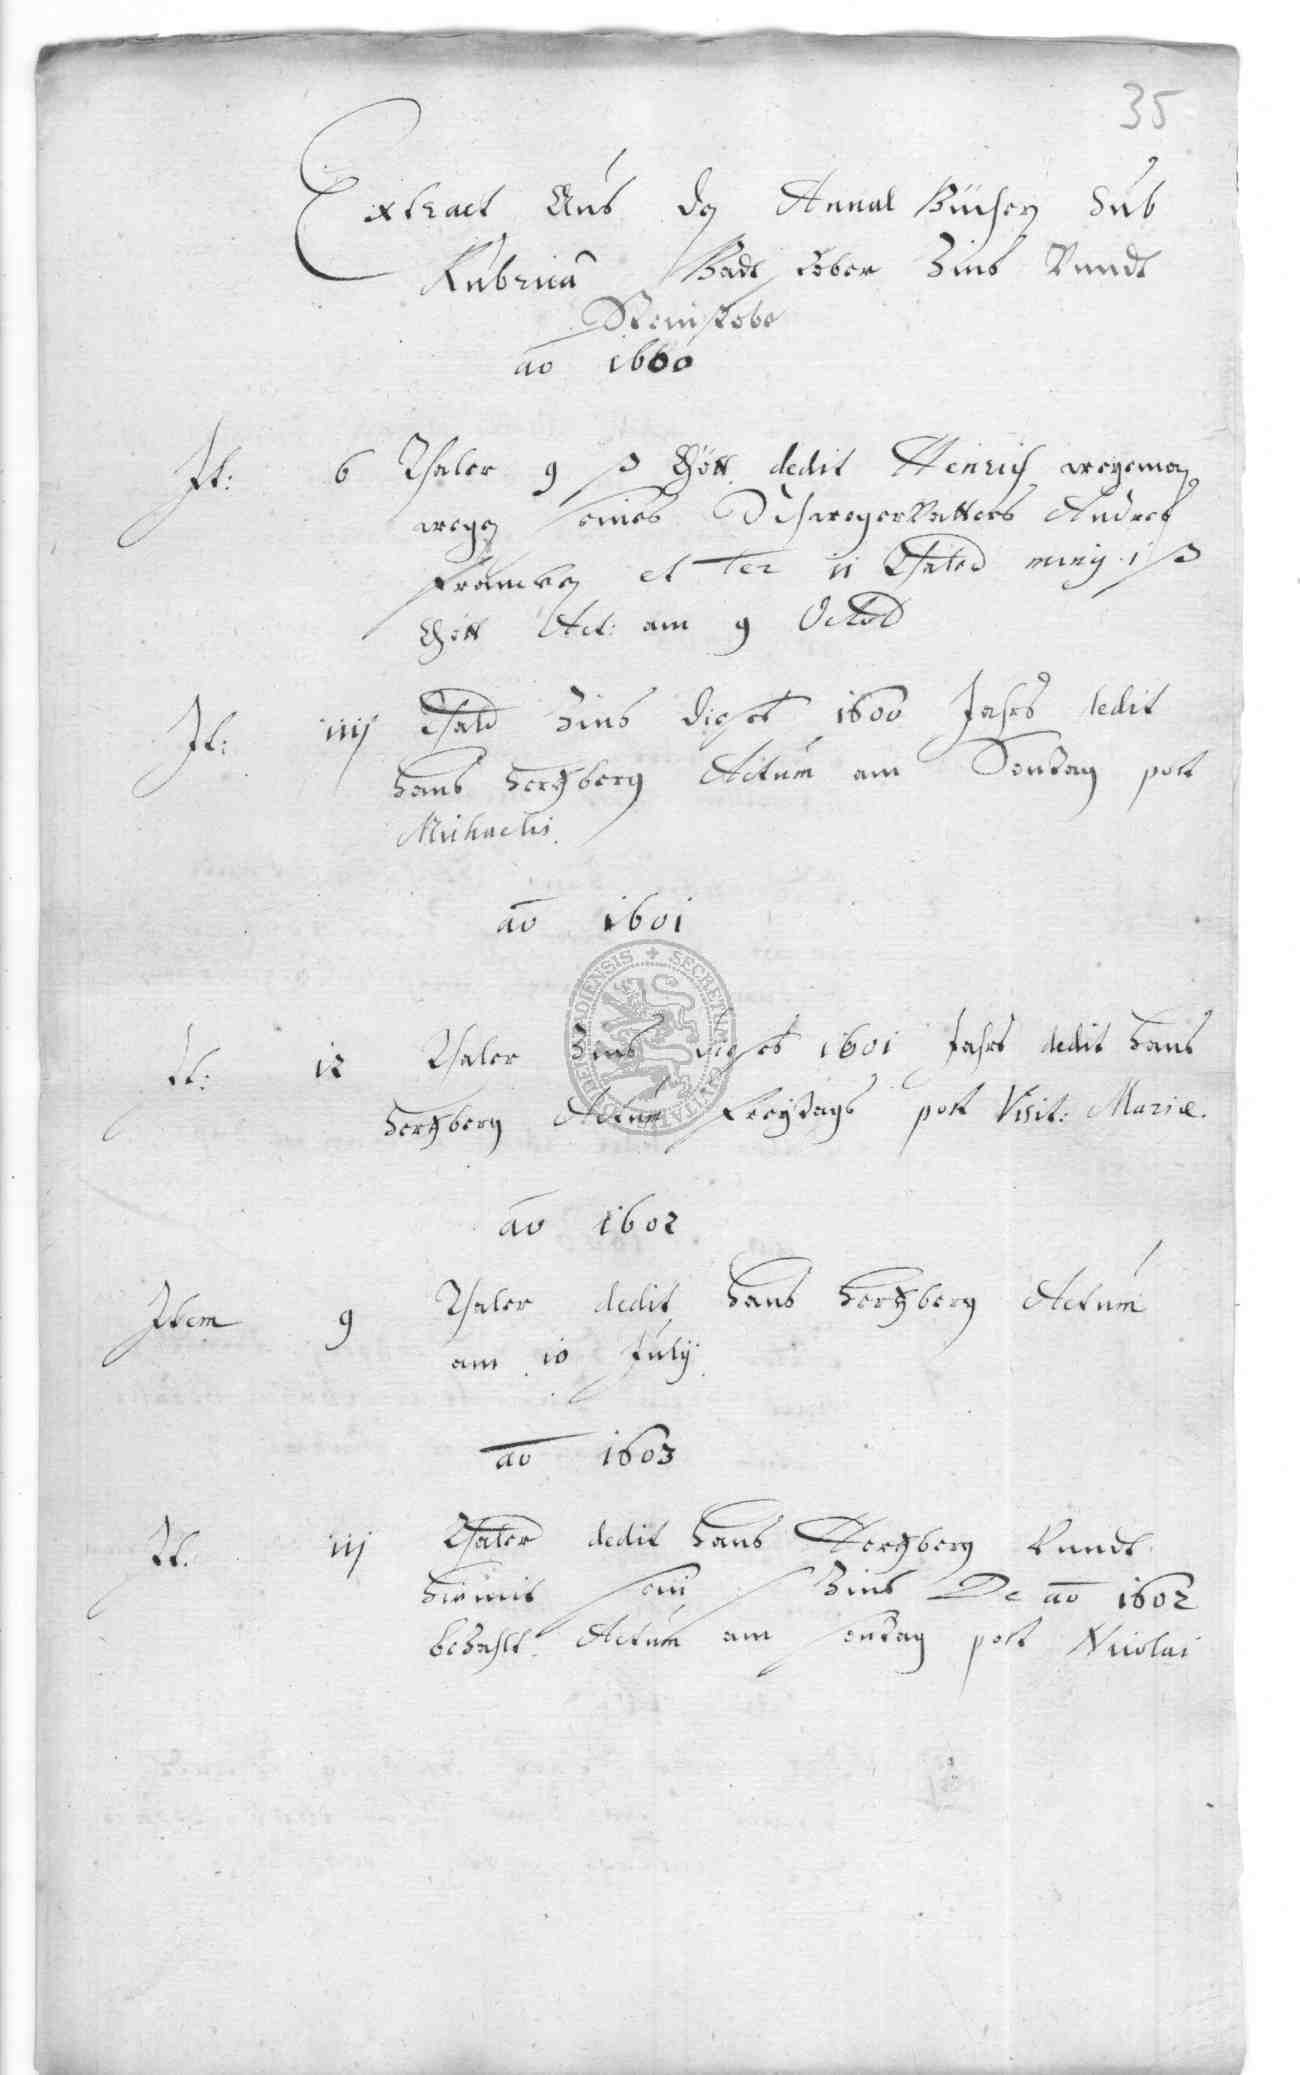 35
Extract Auß den Annal Büchern Sub
Rubrica Badstober Zins Vnndt
Steinstobe
ao 1600
It: 6 Thaler 9 ß dedit Henrich wegemen
wegen seines Schwegervatters Andres
Francken et 11 Thaler min 1 ß
Act: am 9 Octob
It: iiij Thaler Zins dieses 1600 Jahrs dedit
Hans Hertzberg Actum am Sontag post
Michaelis.
ao 1601
It: 12 Thaler Zins dieses 1601 Jahrs dedit Hans
Hertzberg Actum Freytags post Visit: Mariæ.
SECRETVM CIVITATIS
ao 1602
Item 9 Thaler dedit Hans Hertzberg Actum
am 10 July.
ao 1603
It. iij Thaler dedit Hans Hertzberg Vnndt
hiemit sein Zins De ao 1602
bezahlt. Actum am sontag post Nicolai